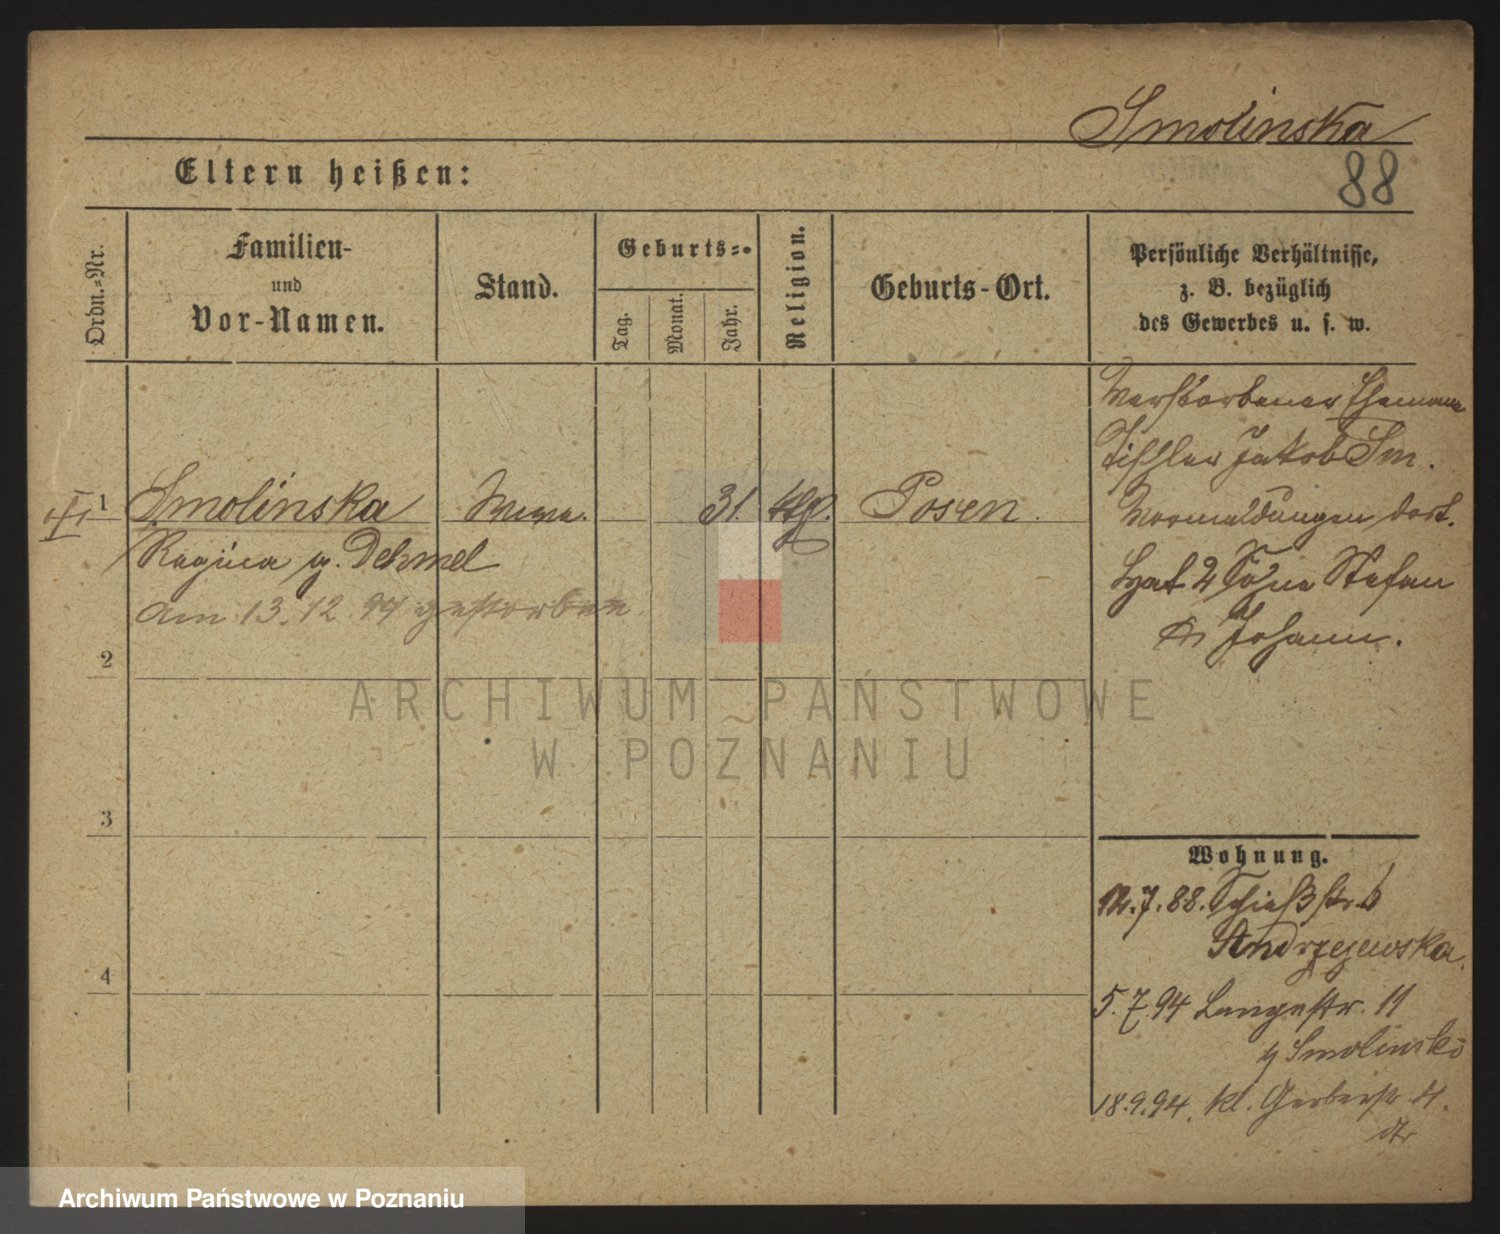 Smolinska
88
Eltern heißen:
Ordn.-Nr.
Familien-
und
Vor-Namen.
Stand.
Geburts-
Tag.
Monat.
Jahr.
Religion.
Geburts-Ort.
Persönliche Verhältnisse,
z. B. bezüglich
des Gewerbes u. s. w.
Verstorbener Ehemann
Tischler Jakob Sm.
1 Smolinska 31. Posen.
Vormeldungen dort.
Regina g. Dehmel
Hat 2 Söhne Stefan
am 13.12.94 gestorben
Johann.
2
ARCHIWUM PAŃSTWOWE
W POZNANIU
3
Wohnung.
12.7.88. Schießstr. 6
Andrzejewska.
4
5.7.94 Langestr. 11
Smolinski
18.9.94. Kl. Gerberstr. 4.
Archiwum Państwowe w Poznaniu